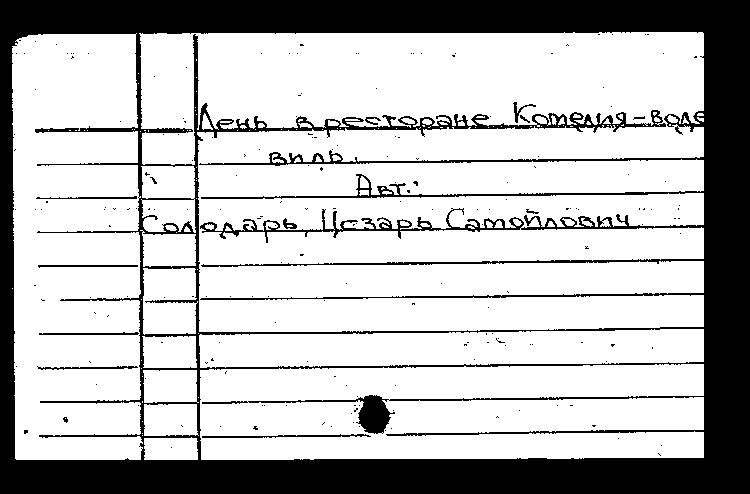 День в ресторане Комедия-воде
виль.
Авт.:
Солодарь, Цезарь Самойлович